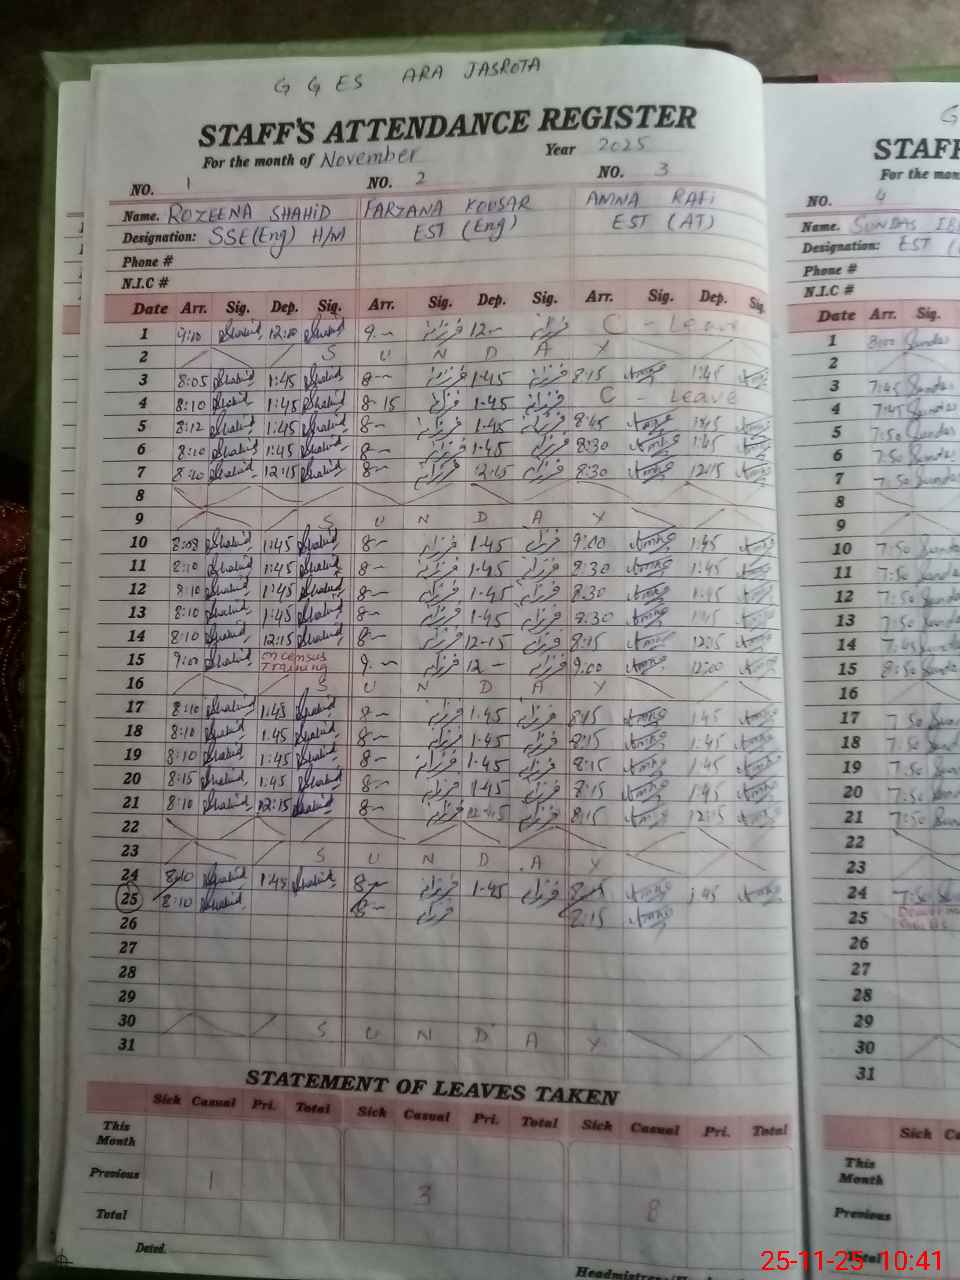 G G ES ARA JASROTA
STAFF'S ATTENDANCE REGISTER
For the month of November Year 2025
NO. 1 NO. 2 NO. 3
Name. ROZEENA SHAHID FARZANA KOUSAR AMNA RAFI
Designation: SSE(Eng) H/M EST (Eng) EST (AT)
Phone #
N.I.C #
Date Arr. Sig. Dep. Sig. Arr. Sig. Dep. Sig. Arr. Sig. Dep. Sig.
1 9:10 Shahid 12:10 Shahid 9 فرزانہ 12 فرزانہ C - Leave
2 S U N D A Y
3 8:05 Shahid 1:45 Shahid 8 فرزانہ 1-45 فرزانہ 8:15 Amna 1:45 Amna
4 8:10 Shahid 1:45 Shahid 8-15 فرزانہ 1-45 فرزانہ C - Leave
5 8:12 Shahid 1:45 Shahid 8 فرزانہ 1-45 فرزانہ 8:45 Amna 1:45 Amna
6 8:10 Shahid 1:45 Shahid 8 فرزانہ 1-45 فرزانہ 8:30 Amna 1:45 Amna
7 8:10 Shahid 12:15 Shahid 8 فرزانہ فرزانہ 8:30 Amna 12:15 Amna
8
9 S U N D A Y
10 8:08 Shahid 1:45 Shahid 8 فرزانہ 1-45 فرزانہ 9:00 Amna 1:45 Amna
11 8:10 Shahid 1:45 Shahid 8 فرزانہ 1-45 فرزانہ 8:30 Amna 1:45 Amna
12 8:10 Shahid 1:45 Shahid 8 فرزانہ 1-45 فرزانہ 8:30 Amna 1:45 Amna
13 8:10 Shahid 1:45 Shahid 8 فرزانہ 1-45 فرزانہ 8:30 Amna 1:45 Amna
14 8:10 Shahid 12:15 Shahid 8 فرزانہ 12-15 فرزانہ 8:15 Amna 12:15 Amna
15 9:00 Shahid on census Training 9 فرزانہ 12 فرزانہ 9:00 Amna 12:00 Amna
16 S U N D A Y
17 8:10 Shahid 1:45 Shahid 8 فرزانہ 1-45 فرزانہ 8:15 Amna 1:45 Amna
18 8:10 Shahid 1:45 Shahid 8 فرزانہ 1-45 فرزانہ 8:15 Amna 1:45 Amna
19 8:10 Shahid 1:45 Shahid 8 فرزانہ 1-45 فرزانہ 8:15 Amna 1:45 Amna
20 8:15 Shahid 1:45 Shahid 8 فرزانہ 1-45 فرزانہ 8:15 Amna 1:45 Amna
21 8:10 Shahid 12:15 Shahid 8 فرزانہ 12-15 فرزانہ 8:15 Amna 12:15 Amna
22
23 S U N D A Y
24 8:10 Shahid 1:45 Shahid 8 فرزانہ 1-45 فرزانہ 8:15 Amna 1:45 Amna
25 8:10 Shahid 8 فرزانہ 8:15 Amna
26
27
28
29
30 S U N D A Y
31
STATEMENT OF LEAVES TAKEN
Sick Casual Pri. Total Sick Casual Pri. Total Sick Casual Pri. Total
This Month
Previous 1 3 8
Total
Dated.
G
STAFF
For the mon
NO. 4
Name. SUNDAS
Designation: EST
Phone #
N.I.C #
Date Arr. Sig.
1 8:00 Sundas
2
3 7:45 Sundas
4 7:45 Sundas
5 7:50 Sundas
6 7:50 Sundas
7 7:50 Sundas
8
9
10 7:50 Sundas
11 7:50 Sundas
12 7:50 Sundas
13 7:50 Sundas
14 7:45 Sundas
15 8:50 Sundas
16
17 7:50 Sundas
18 7:50 Sundas
19 7:50 Sundas
20 7:50 Sundas
21 7:50 Sundas
22
23
24 7:50 Sundas
25
26
27
28
29
30
31
Sick
This Month
Previous
Total
25-11-25 10:41